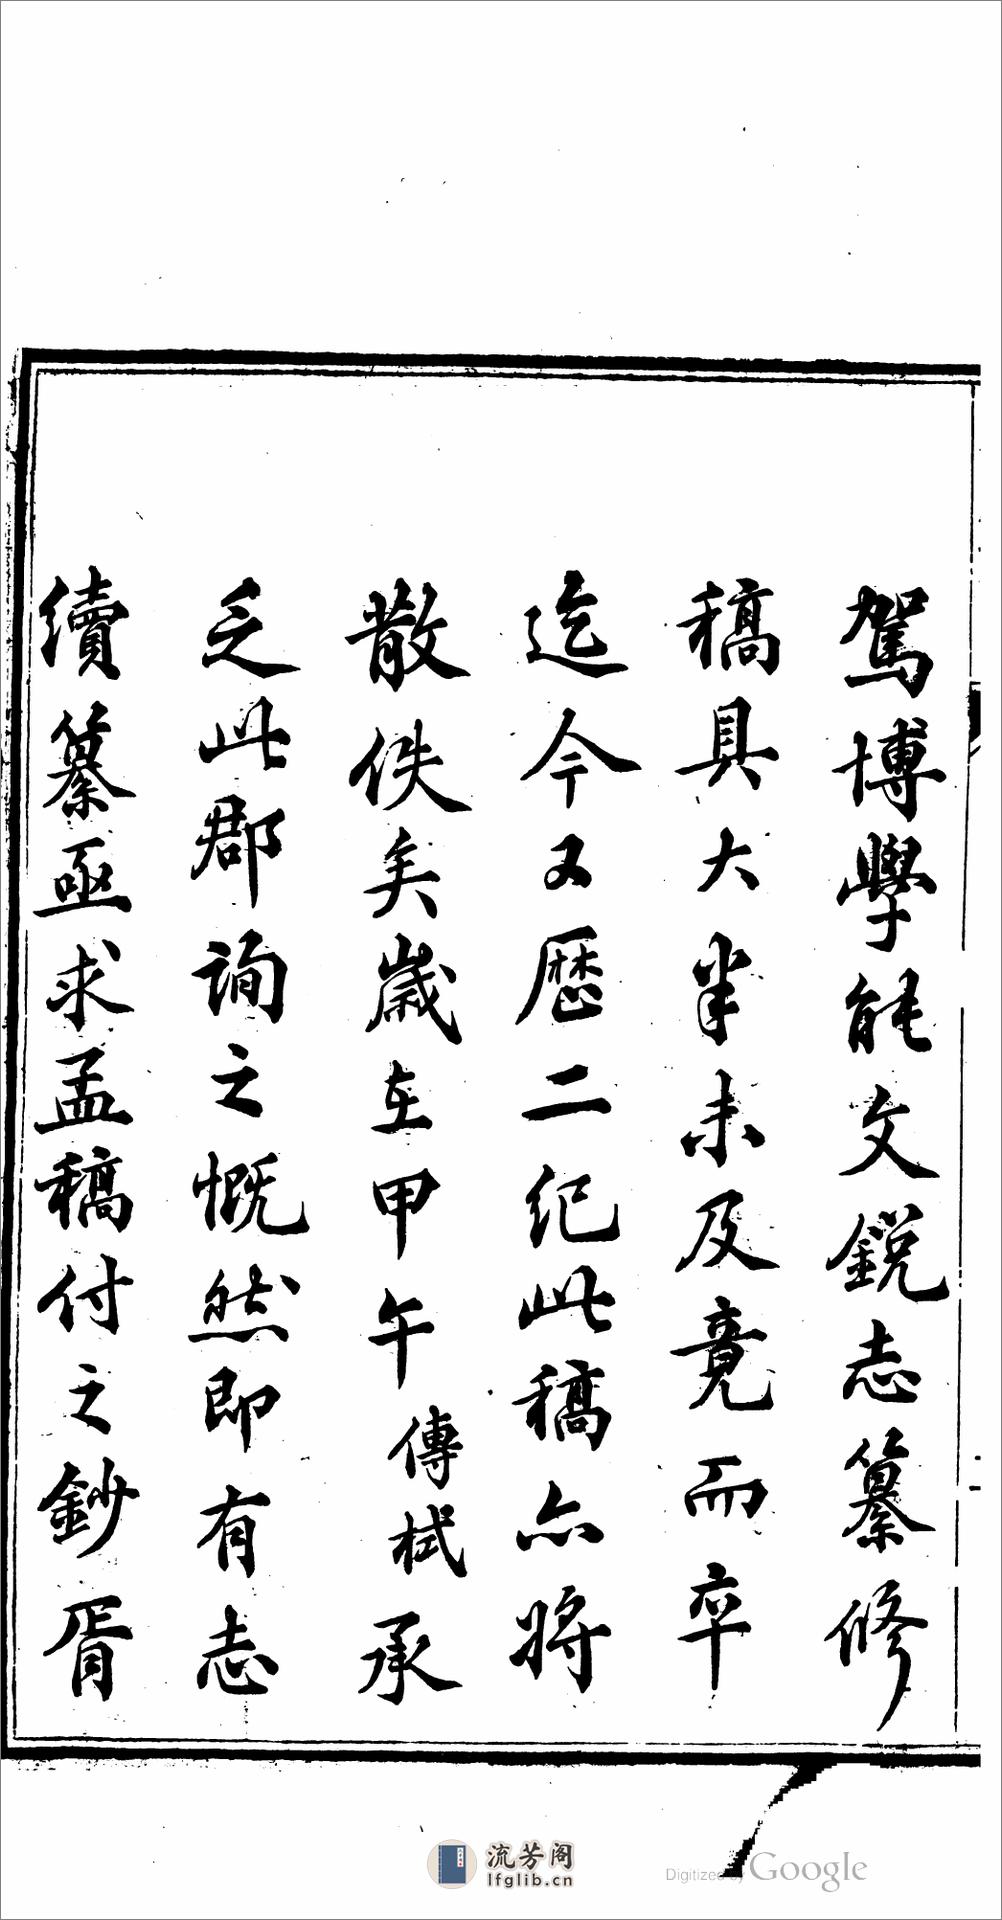 駕博學能文鋭志纂修
稿具大半未及竟而卒
迄今又歷二紀此稿亦將
散佚矣歲在甲午傳栻承
乏此郡詢之慨然即有志
續纂亟求孟稿付之鈔胥
流芳阁
lfglib.cn
Digitized by Google